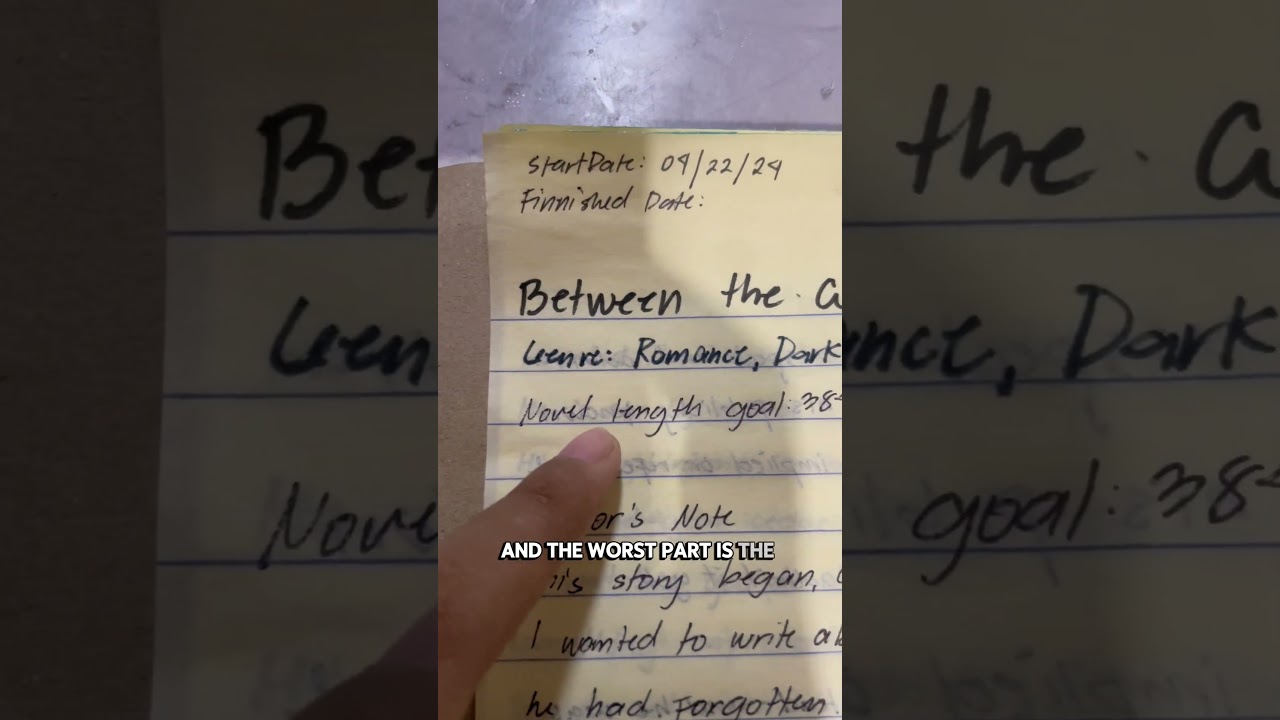 StartDate: 04/22/24
Finnished Date:
Between the
Genre: Romance, Dark
Novel length goal: 38
or's Note
AND THE WORST PART IS THE
is story began,
I wanted to write
he had forgotten